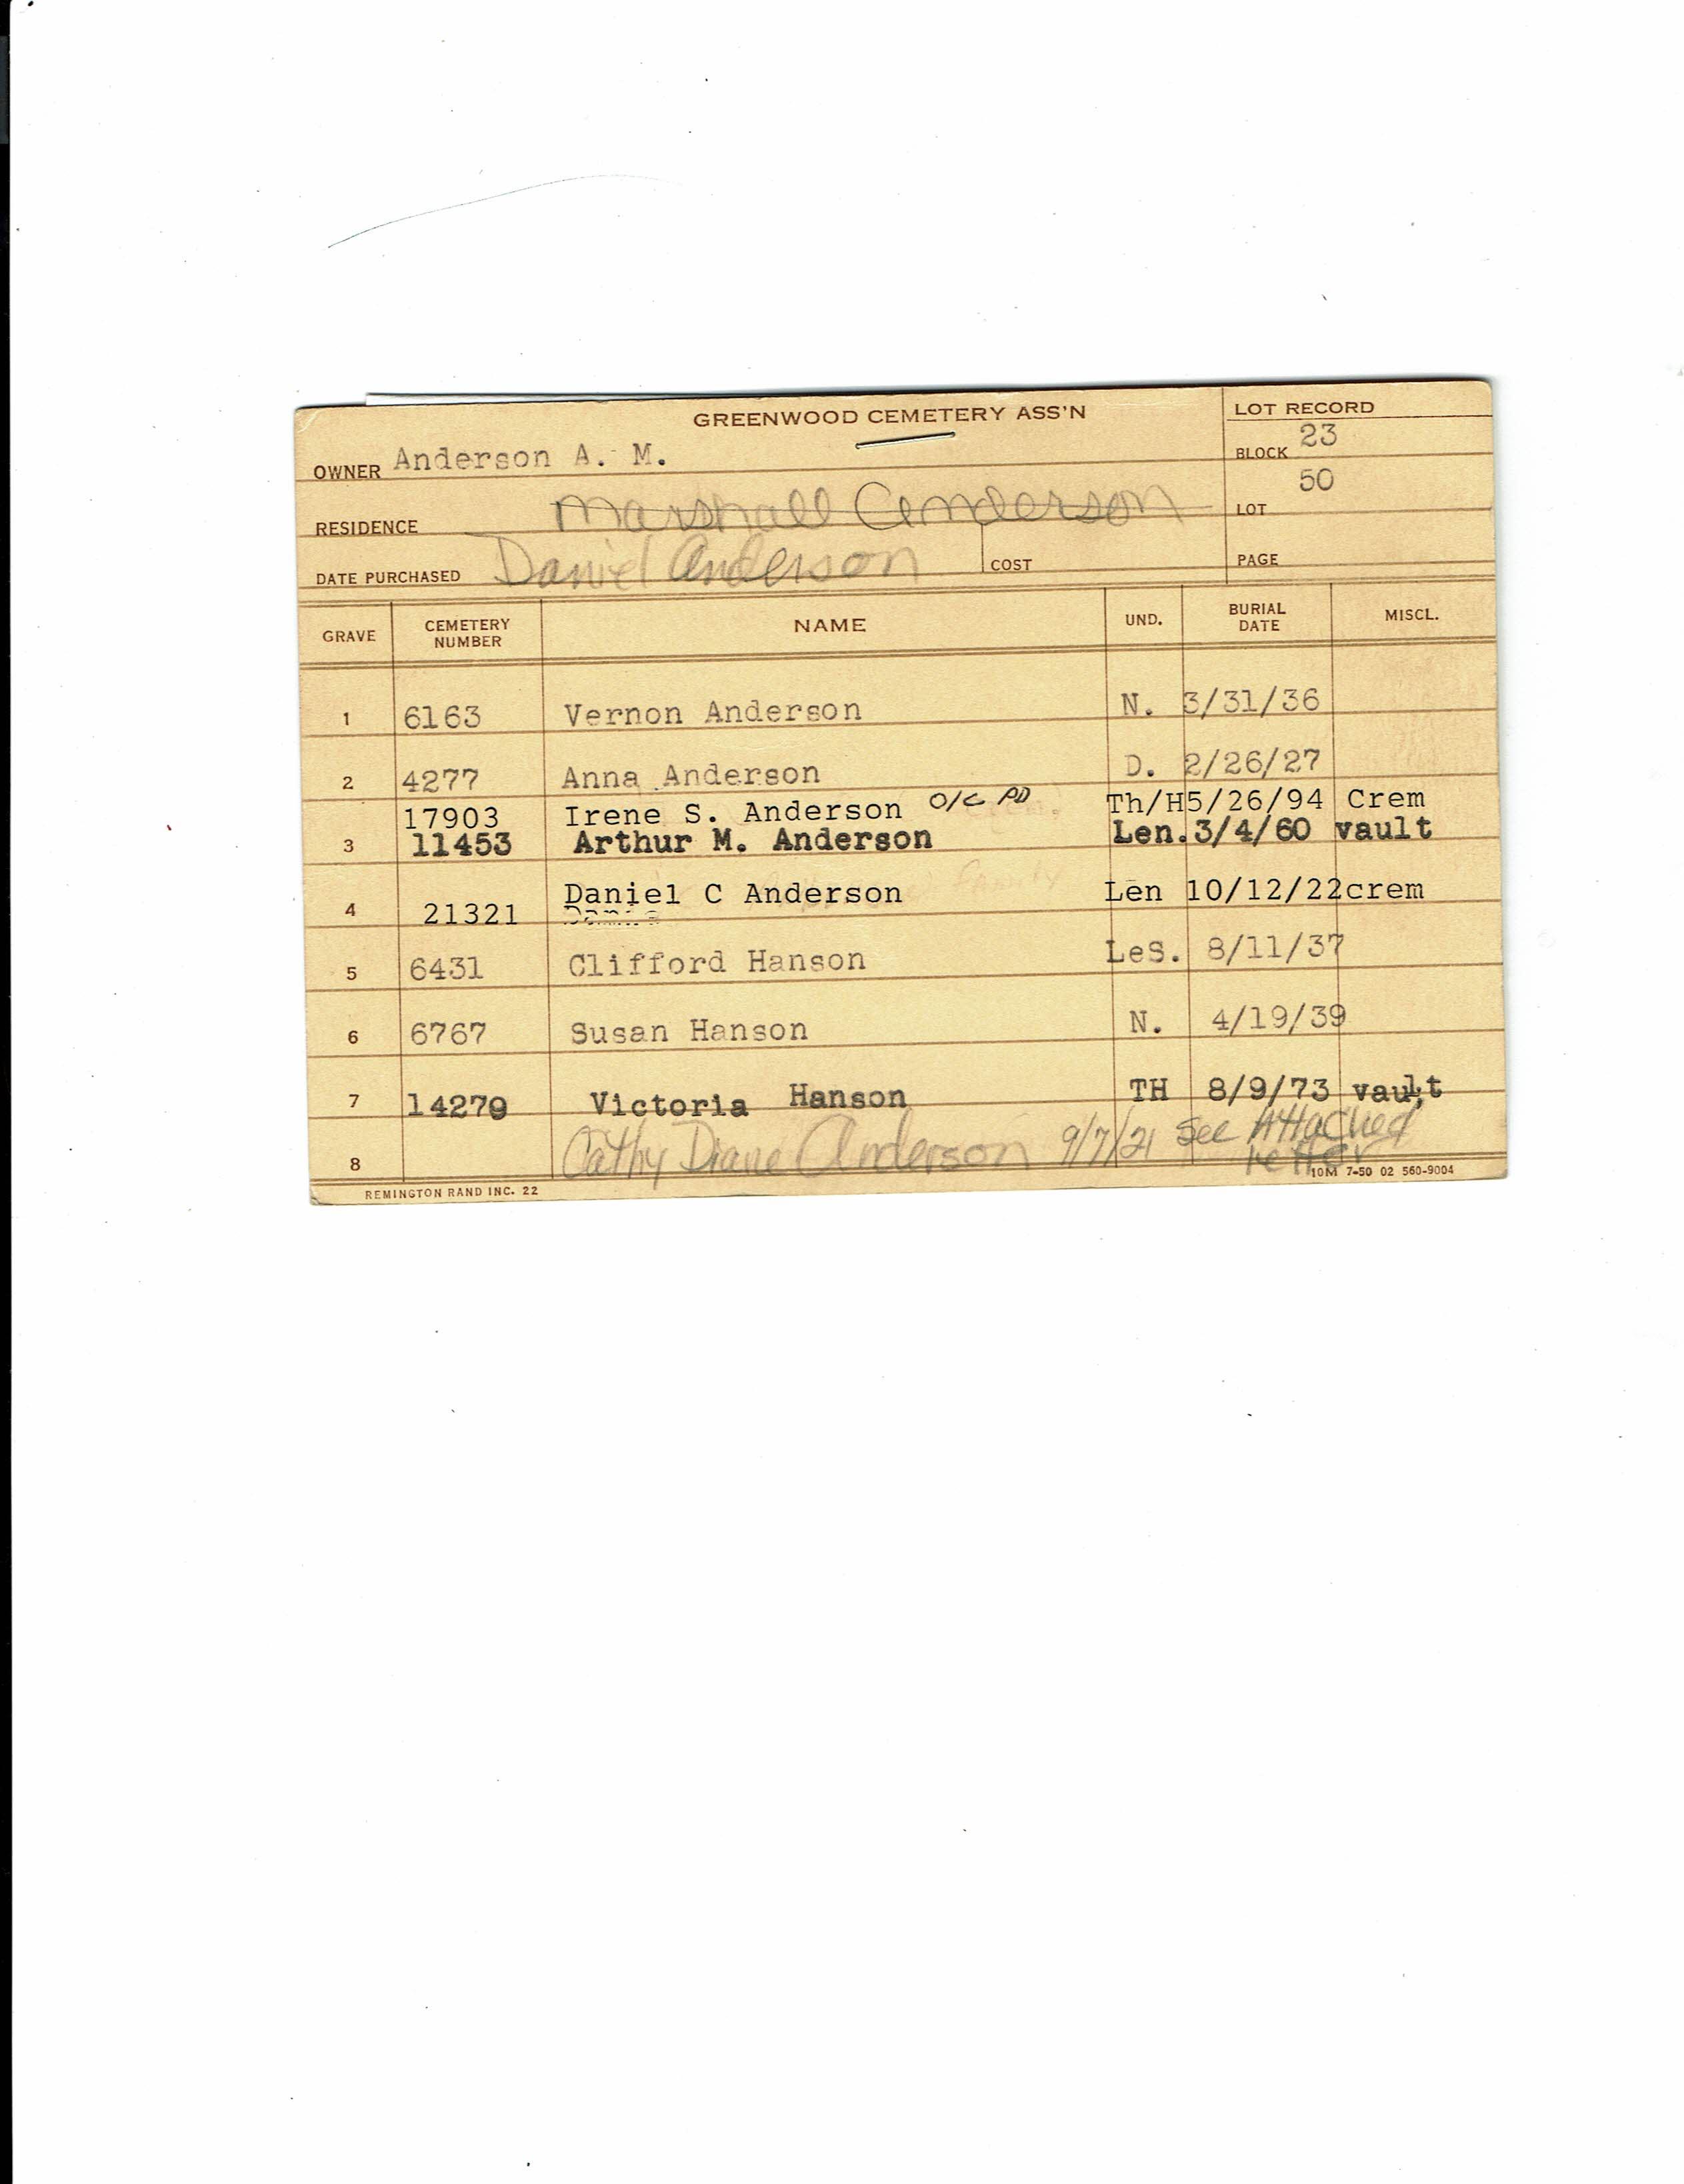 GREENWOOD CEMETERY ASS'N
LOT RECORD
OWNER Anderson A. M.
BLOCK 23
RESIDENCE Marshall Anderson
LOT 50
DATE PURCHASED Daniel Anderson COST
PAGE
GRAVE CEMETERY NUMBER NAME UND. BURIAL DATE MISCL.
1 6163 Vernon Anderson N. 3/31/36
2 4277 Anna Anderson D. 2/26/27
17903 Irene S. Anderson O/C PD Th/H 5/26/94 Crem
3 11453 Arthur M. Anderson Len. 3/4/60 vault
Daniel C Anderson Len 10/12/22 crem
4 21321
5 6431 Clifford Hanson LeS. 8/11/37
6 6767 Susan Hanson N. 4/19/39
7 14279 Victoria Hanson TH 8/9/73 vault
8 Cathy Diane Anderson 9/7/21 See Attached
letter
REMINGTON RAND INC. 22
10M 7-50 02 560-9004